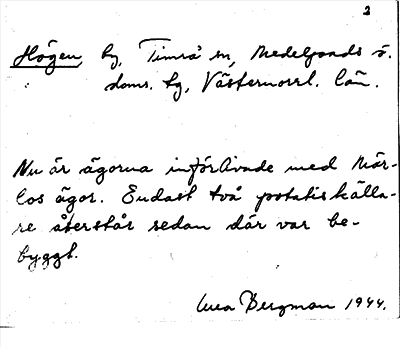 2
Högen, by, Timrå sn, Medelpads ö.
doms. tg, Västernorrl. län.
Nu är ägorna införlivade med Mär-
los ägor. Endast två potatiskälla-
re återstår sedan där var be-
byggt.
Bergman 1944.